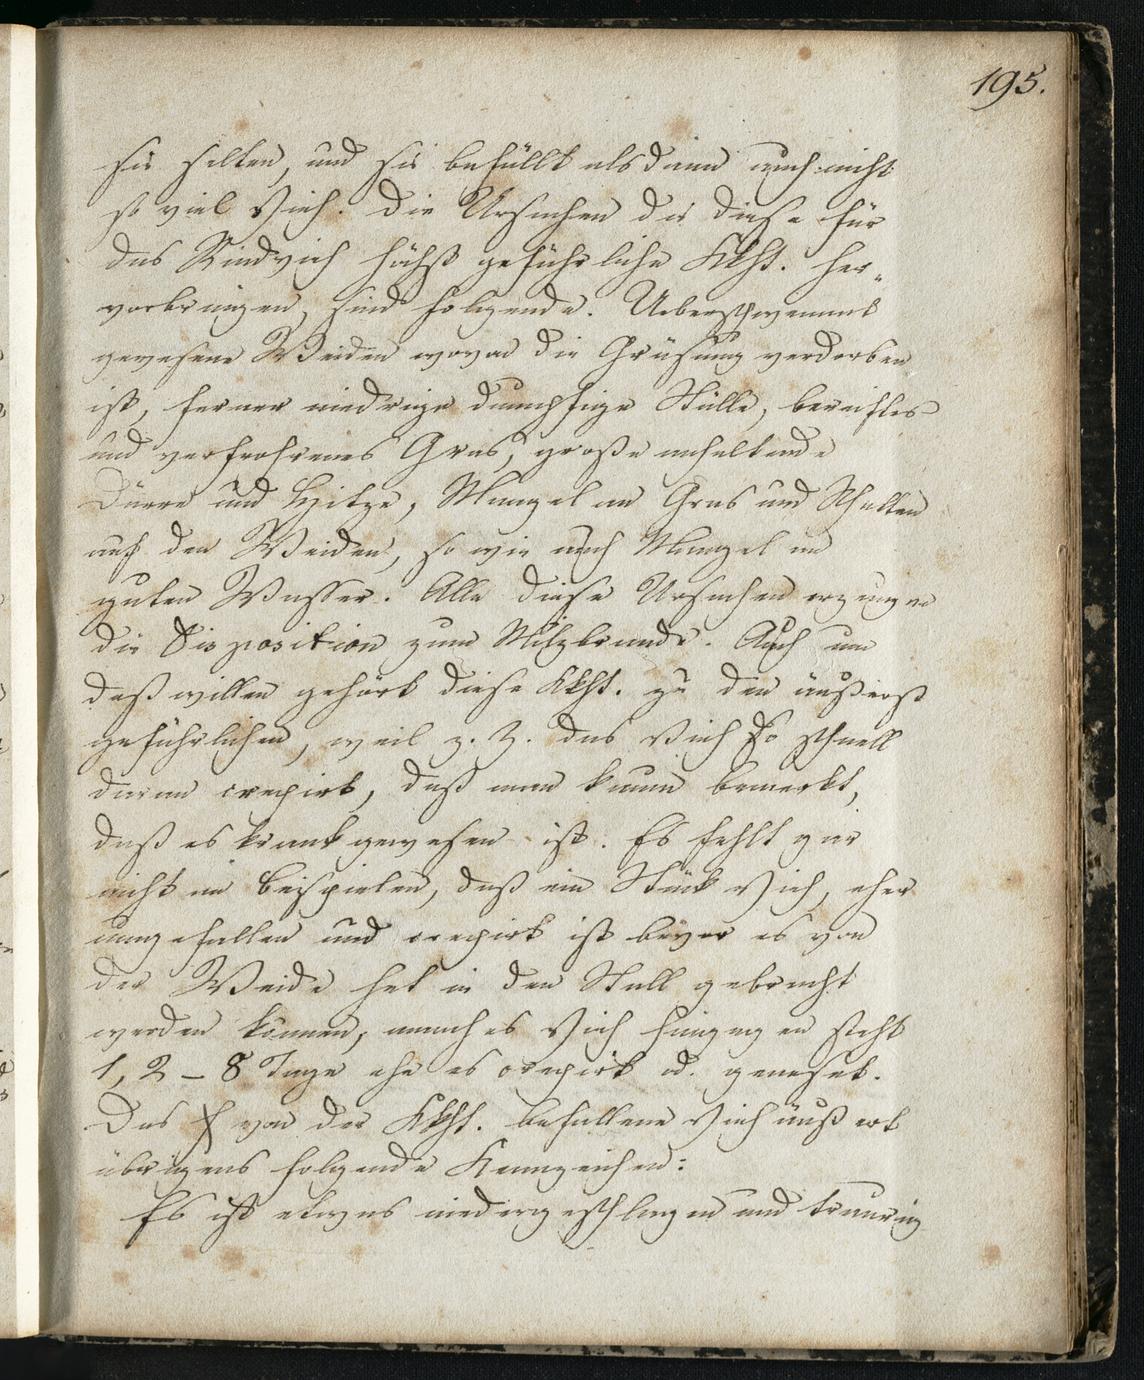 195.
sie selten, und sie befällt alsdann auch nicht
so viel Vieh. Die Ursachen die diese für
das Rindvieh höchst gefährliche Kkht. her-
vorbringen, sind folgende. Ueberschwemmt
gewesene Weiden wovon die Gräsung verdorben
ist, ferner niedrige dumpfige Ställe, bereiftes
und verfrohrenes Gras, große anhaltende
Dürre und Hitze, Mangel an Gras und Schatten
auf den Weiden, so wie auch Mangel an
guten Wasser. Alle diese Ursachen erzeugen
die Disposition zum Milzbrande. Auch um
deßwillen gehört diese Kkht. zu den äußerst
gefährlichen, weil z. Z. das Vieh so schnell
daran crepirt, daß man kaum bemerkt,
daß es krank gewesen ist. Es fehlt gar
nicht an Beispielen, daß ein Stück Vieh, eher
umgefallen und crepirt ist bevor es von
der Weide hat in den Stall gebracht
werden können, manches Vieh hingegen steht
1, 2 – 8 Tage ehe es crepirt od. geneset.
Das von der Kkht. befallene Vieh äußert
übrigens folgende Kennzeichen:
Es ist etwas niedergeschlagen und traurig